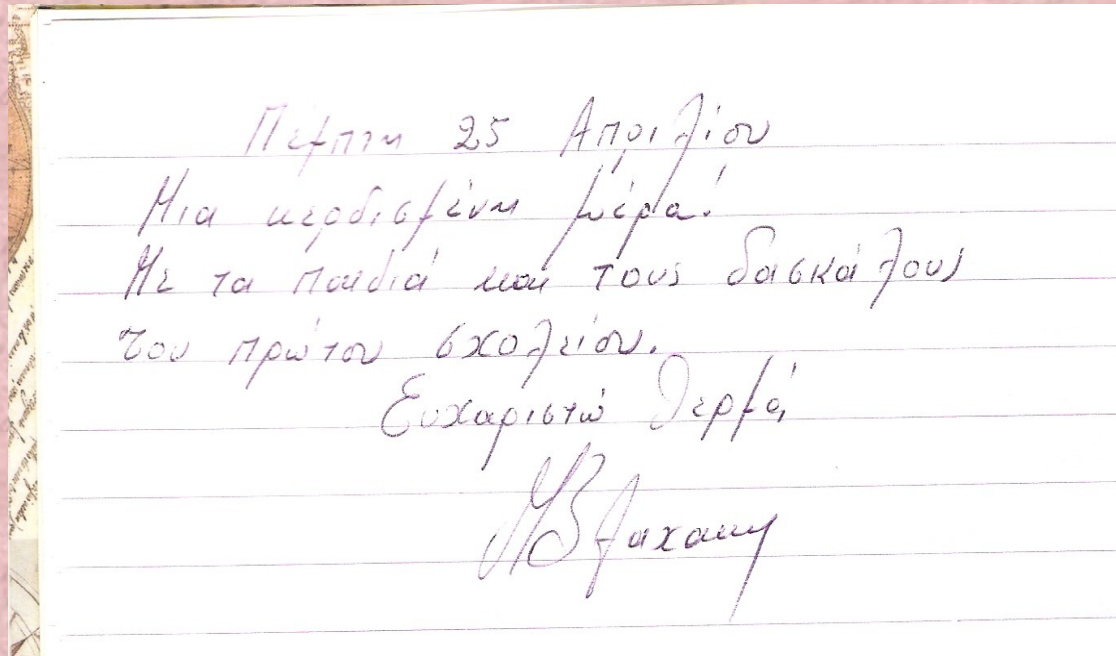 Πέμπτη 25 Απριλίου
Μια κερδισμένη μέρα!
Με τα παιδιά και τους δασκάλους
του πρώτου σχολείου.
Ευχαριστώ θερμά,